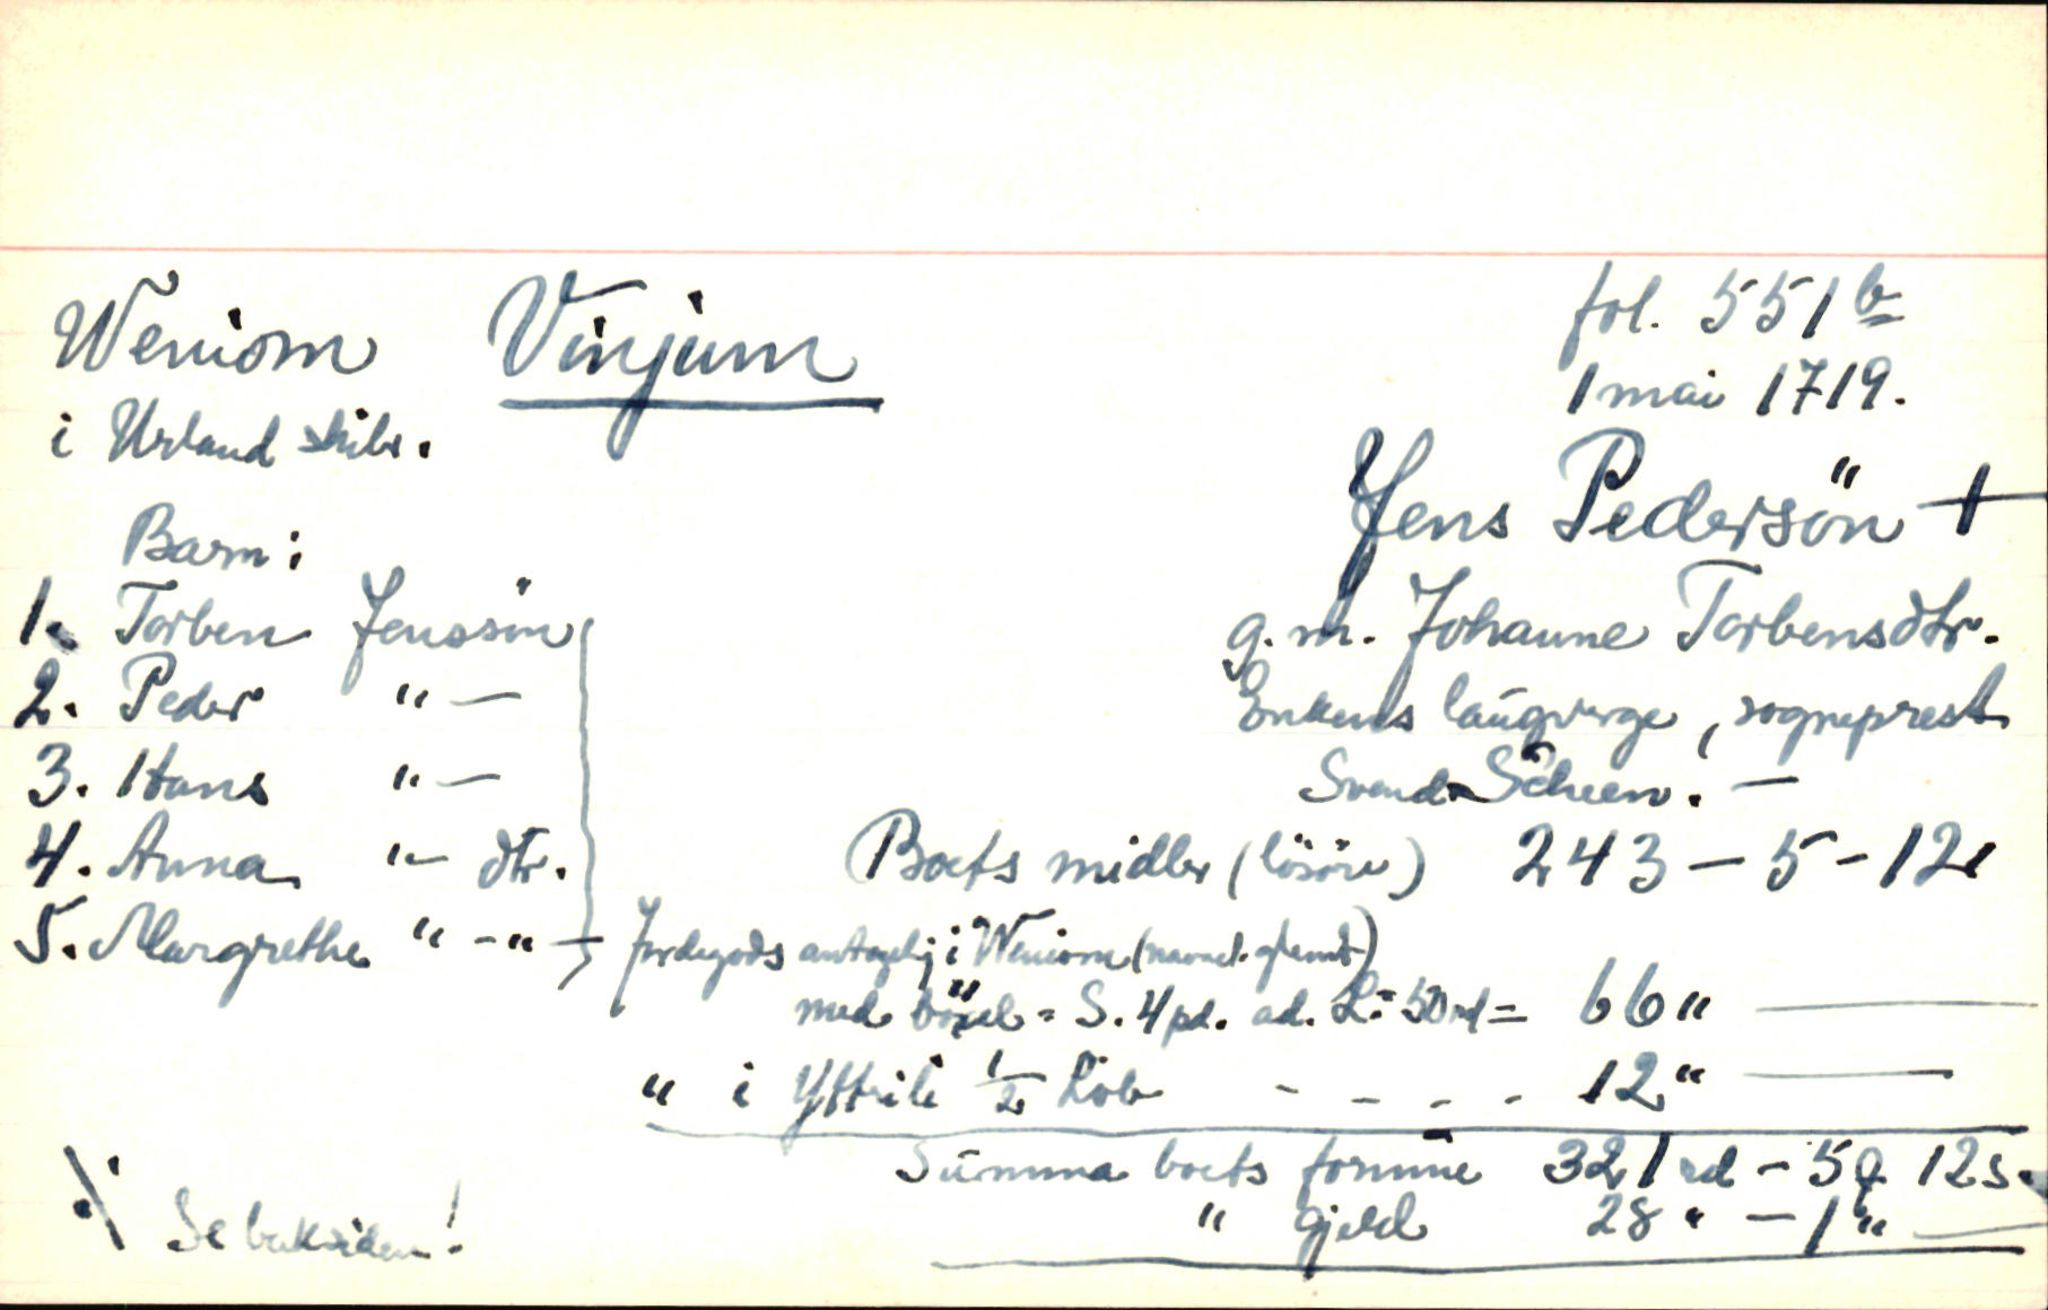 Weniom Vinjum
fol. 551 b
1 mai 1719.
i Urland skibr.
Jens Pedersön +
g. m. Johanne Torbensdtr.
Enkens laugverge, sogneprest
Svend Scheen. —
Barn:
1. Torben Jenssön
2. Peder " —
3. Hans " —
4. Anna " — dtr.
5. Margrethe " - " —
Boets midler (lösöre) 243 — 5 - 12.
Jordegods antagelj i Weniom (navnet glemt)
med böxel = S. 4 pd. ad. L = 50 rd = 66 " —
" i Yttrili 1/2 Löb - - - - 12 " —
Summa boets formue 321 rd - 5 q 12 s.
" gjeld 28 " — 1 " —
./. Se baksiden!